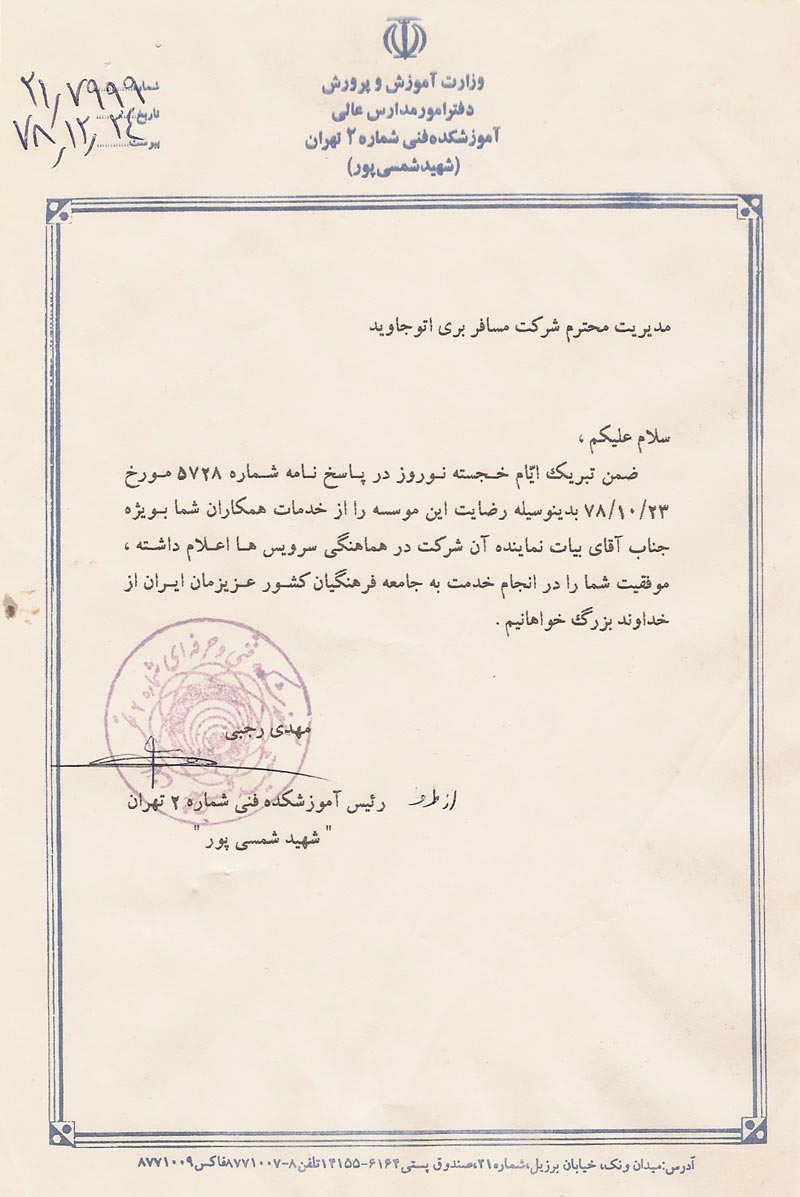 وزارت آموزش و پرورش
دفتر امور مدارس عالی
آموزشکده فنی شماره ۲ تهران
(شهید شمسی پور)
شماره ۲۱٫۷۹۹۹
تاریخ ۷۸٫۱۲٫۲۴
پیوست
مدیریت محترم شرکت مسافر بری اتوجاوید
سلام علیکم ،
ضمن تبریک ایّام خجسته نوروز در پاسخ نامه شماره ۵۷۲۸ مورخ
۷۸/۱۰/۲۳ بدینوسیله رضایت این موسسه را از خدمات همکاران شما بویژه
جناب آقای بیات نماینده آن شرکت در هماهنگی سرویس ها اعلام داشته ،
موفقیت شما را در انجام خدمت به جامعه فرهنگیان کشور عزیزمان ایران از
خداوند بزرگ خواهانیم .
فنی و حرفه ای شماره ۲
مهدی رجبی
از طرف رئیس آموزشکده فنی شماره ۲ تهران
" شهید شمسی پور "
آدرس:میدان ونک، خیابان برزیل،شماره۲۱،صندوق پستی۶۱۶۴-۱۴۱۵۵تلفن۸-۸۷۷۱۰۰۷فاکس۸۷۷۱۰۰۹